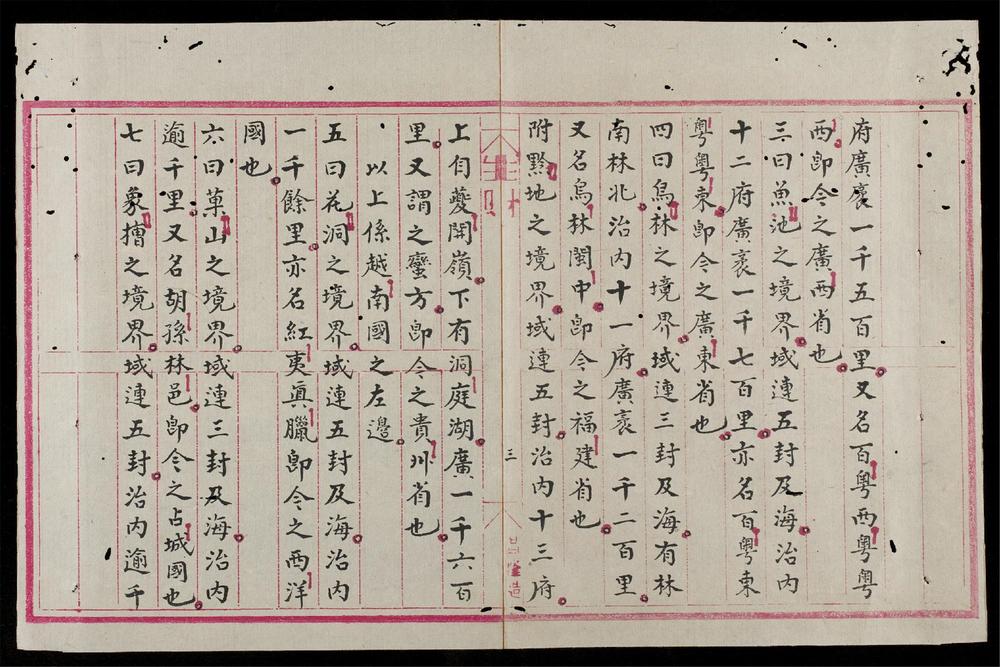 府廣袤一千五百里又名百粤西粤粤
西即今之廣西省也
三曰魚池之境界域連五封及海治内
十二府廣袤一千七百里亦名百粤東
粤粤東即今之廣東省也
四曰烏林之境界域連三封及海有林
南林北治内十一府廣袤一千二百里
又名烏林閩中即今之福建省也
附黔地之境界域連五封治内十三府
三
上自夔開嶺下有洞庭湖廣一千六百
里又謂之蠻方即今之貴州省也
以上係越南國之左邊
五曰花洞之境界域連五封及海治内
一千餘里亦名紅夷眞臘即今之西洋
國也
六曰菓山之境界域連三封及海治内
逾千里又名胡孫林邑即今之占城國也
七曰象㯓之境界域連五封治内逾千